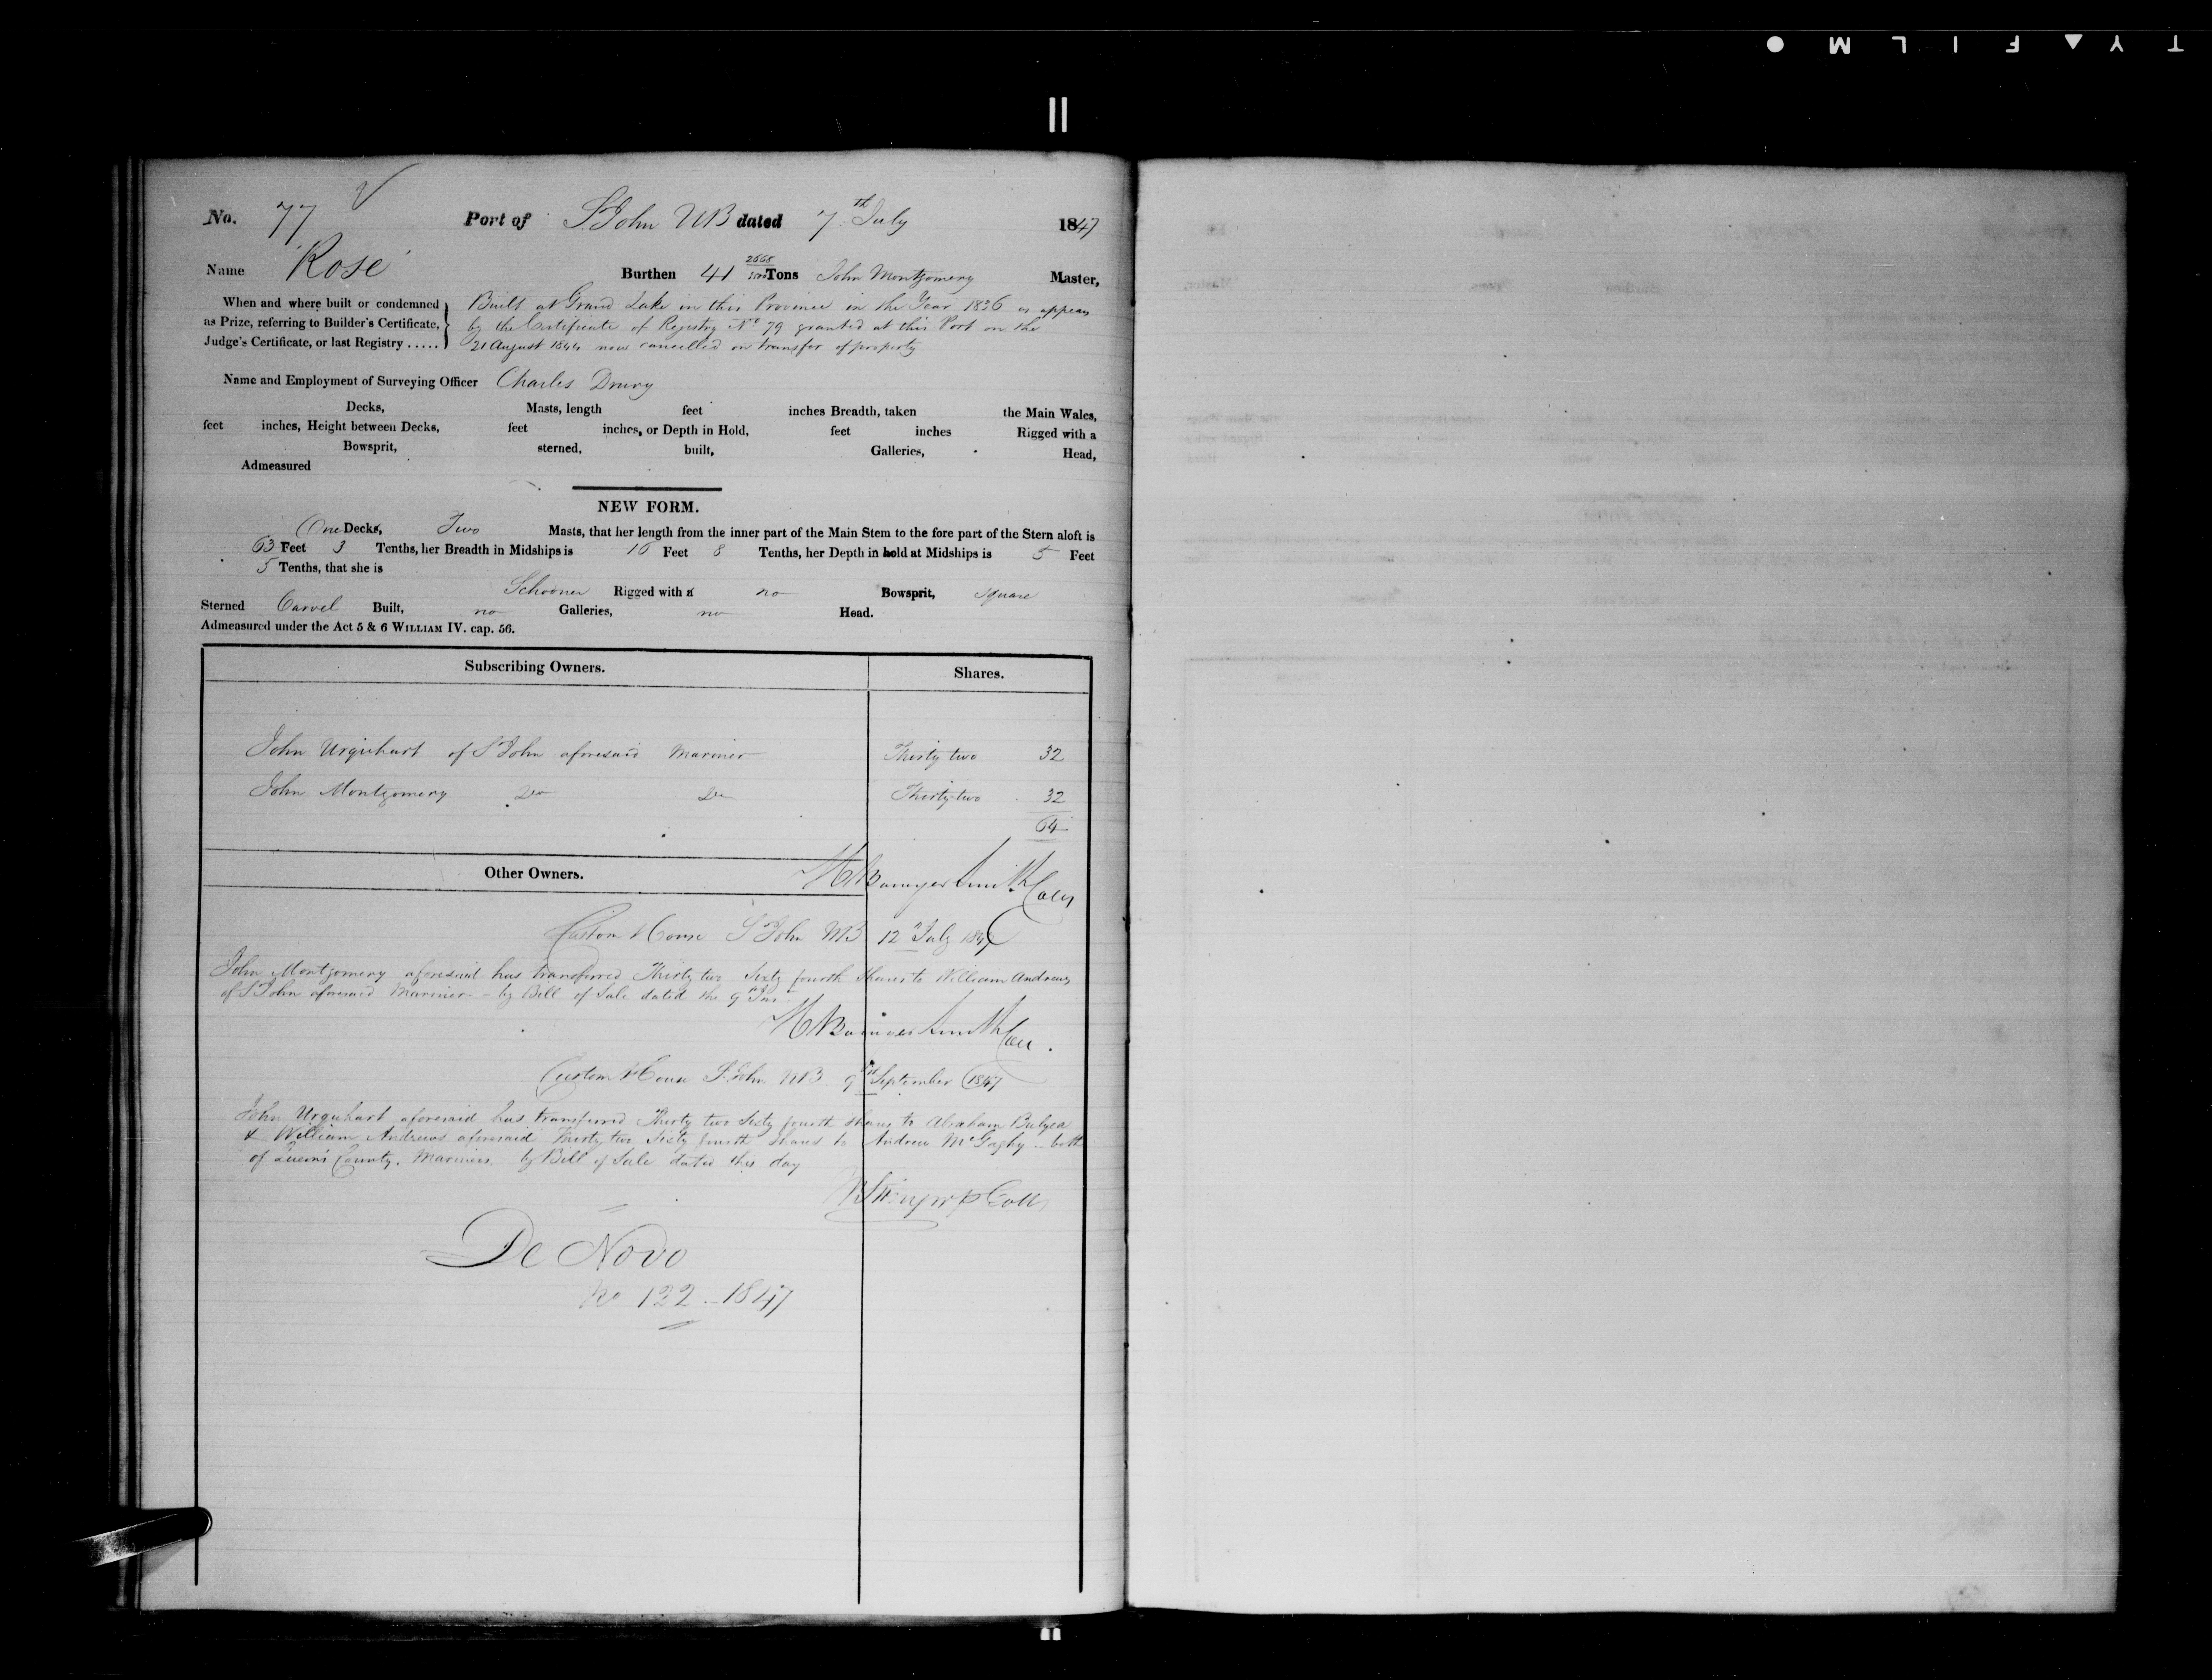 No. 77 Port of St John NB dated 7th July 1847
Name 'Rose' Burthen 41 2668/3500 Tons John Montgomery Master,
When and where built or condemned as Prize, referring to Builder's Certificate, Judge's Certificate, or last Registry.....
Built at Grand Lake in this Province in the Year 1836 as appears
by the Certificate of Registry No 79 granted at this Port on the
21 August 1844 now cancelled on transfer of property
Name and Employment of Surveying Officer Charles Drury
Decks, Masts, length feet inches Breadth, taken the Main Wales,
feet inches, Height between Decks, feet inches, or Depth in Hold, feet inches Rigged with a
Bowsprit, sterned, built, Galleries, Head,
Admeasured
NEW FORM.
One Decks, Two Masts, that her length from the inner part of the Main Stem to the fore part of the Stern aloft is
63 Feet 3 Tenths, her Breadth in Midships is 16 Feet 8 Tenths, her Depth in hold at Midships is 5 Feet
5 Tenths, that she is
Schooner Rigged with a no Bowsprit, Square
Sterned Carvel Built, no Galleries, no Head.
Admeasured under the Act 5 & 6 WILLIAM IV. cap. 56.
Subscribing Owners. Shares.
John Urquhart of St John aforesaid Mariner Thirty two 32
John Montgomery Do Do Thirty two 32
64
Other Owners.
H Bowyer Smith Coll
Custom House St John NB 12 July 1847
John Montgomery aforesaid has transferred Thirty two Sixty fourth Shares to William Andrews
of St John aforesaid Mariner - by Bill of Sale dated the 9th Inst
H Bowyer Smith Coll.
Custom House St John NB 9th September 1847
John Urquhart aforesaid has transferred Thirty two Sixty fourth shares to Abraham Bulyea
& William Andrews aforesaid Thirty two Sixty fourth shares to Andrew McGaghy - both
of Queen's County, Mariners by Bill of Sale dated this day
De Novo
No 122 - 1847